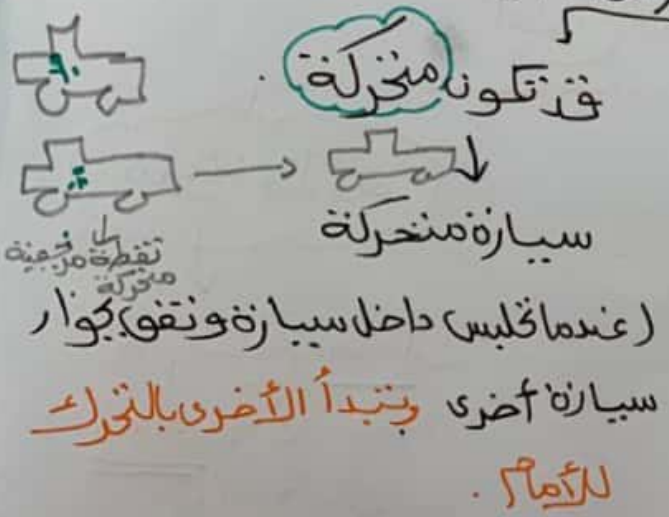 قد تكون متحركة.
سيارة متحركة
نقطة مرجعية
متحركة
(عندما تجلس داخل سيارة وتقف بجوار
سيارة أخرى وتبدأ الأخرى بالتحرك
للأمام.